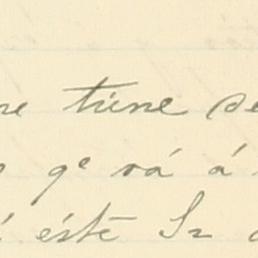 tiene se
qe vá á
éste Sr